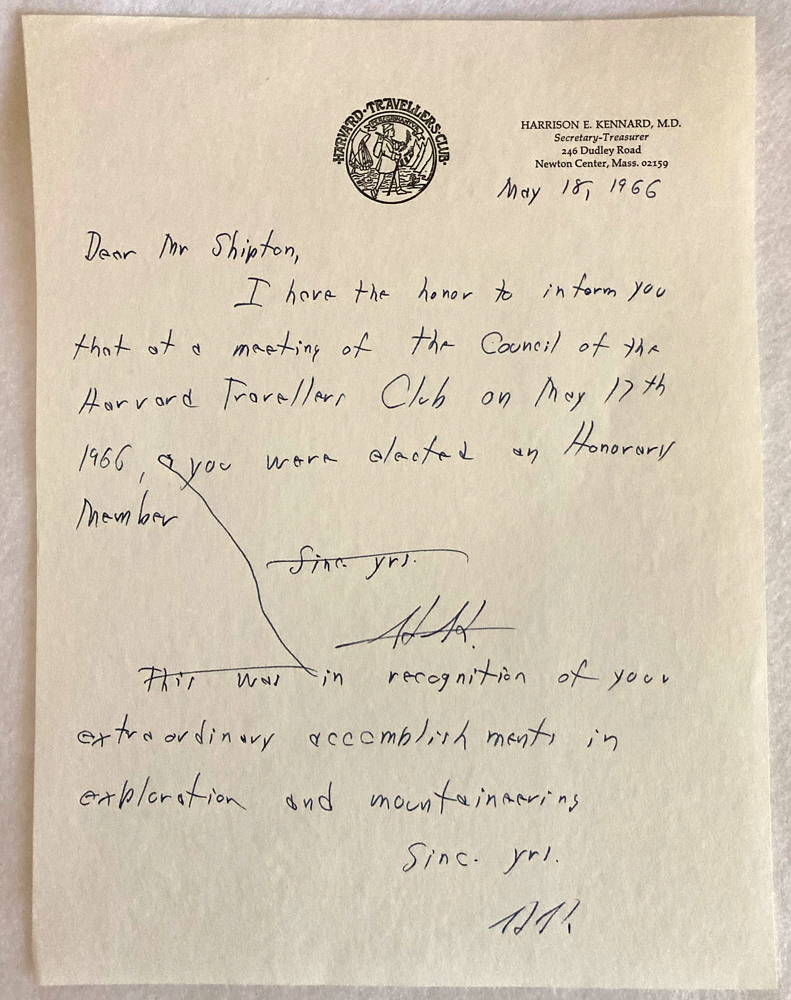 HARVARD·TRAVELLERS·CLUB·
HARRISON E. KENNARD, M.D.
Secretary-Treasurer
246 Dudley Road
Newton Center, Mass. 02159
May 18, 1966
Dear Mr Shipton,
I have the honor to inform you
that at a meeting of the Council of the
Harvard Travellers Club on May 17th
1966, you were elected an Honorary
Member
Sinc. yrs.
HK.
This was in recognition of your
extraordinary accomplishments in
exploration and mountaineering
Sinc. yrs.
HK.